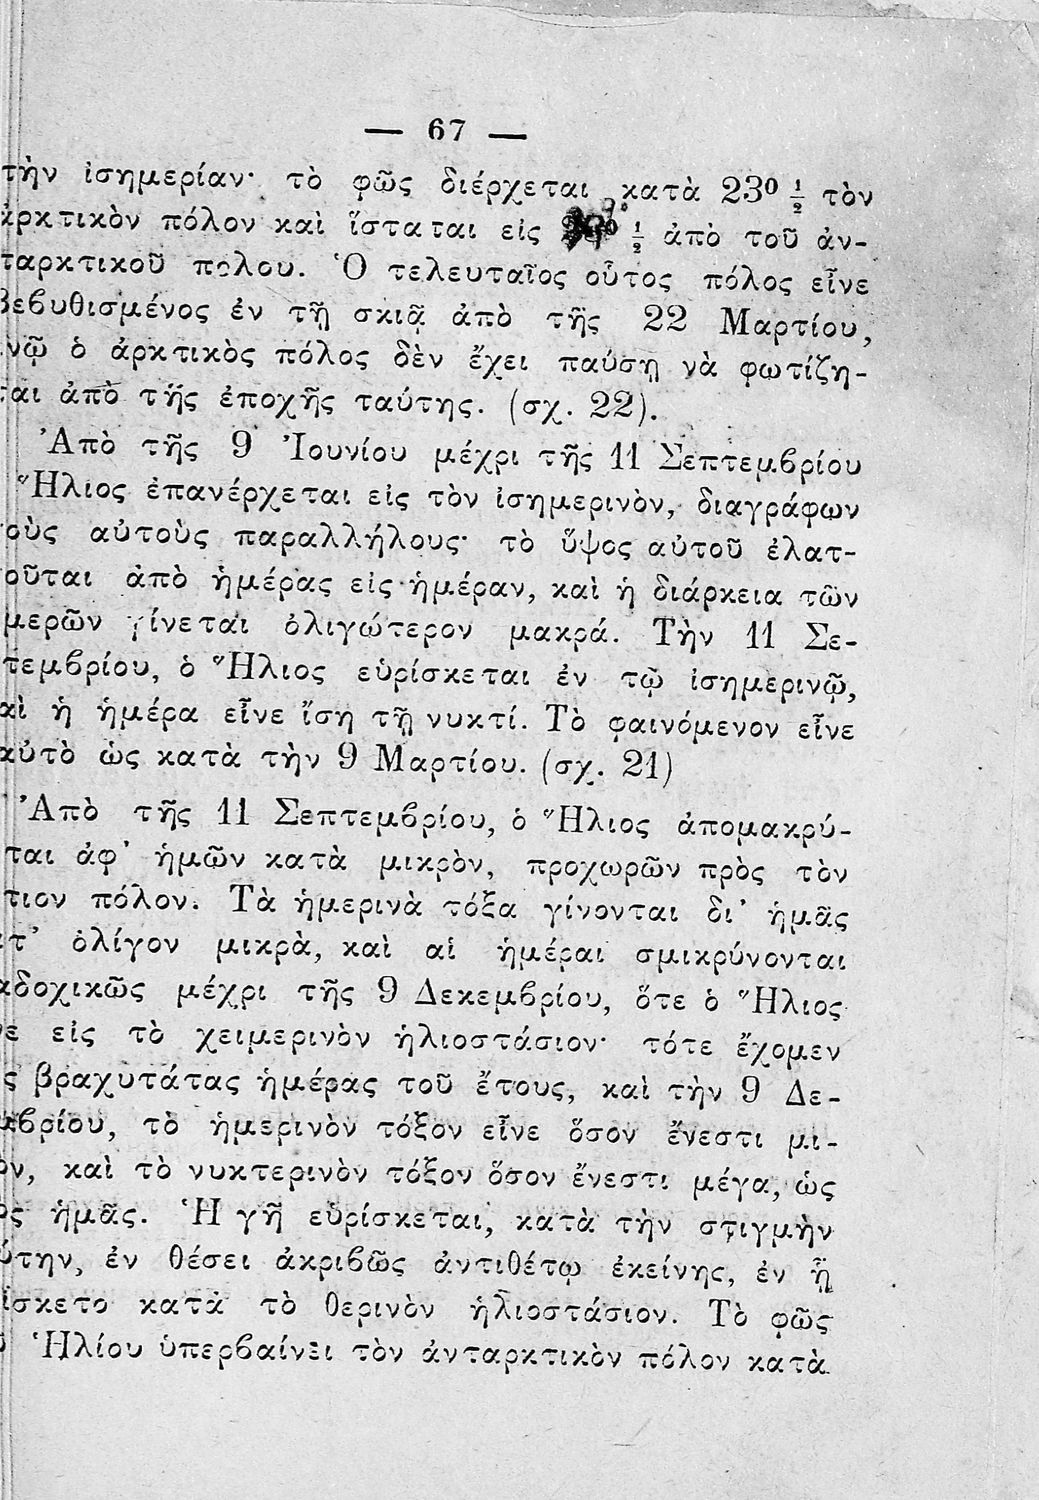 — 67 —
τὴν ἰσημερίαν· τὸ φῶς διέρχεται κατὰ 23⁰ ½ τὸν
ἀρκτικὸν πόλον καὶ ἵσταται εἰς ½ ἀπὸ τοῦ ἀν-
ταρκτικοῦ πόλου. Ὁ τελευταῖος οὗτος πόλος εἶνε
βεβυθισμένος ἐν τῇ σκιᾷ ἀπὸ τῆς 22 Μαρτίου,
νῷ ὁ ἀρκτικὸς πόλος δὲν ἔχει παύσῃ νὰ φωτίζη-
ται ἀπὸ τῆς ἐποχῆς ταύτης. (σχ. 22).
Ἀπὸ τῆς 9 Ἰουνίου μέχρι τῆς 11 Σεπτεμβρίου
Ἥλιος ἐπανέρχεται εἰς τὸν ἰσημερινὸν, διαγράφων
τοὺς αὐτοὺς παραλλήλους· τὸ ὕψος αὐτοῦ ἐλατ-
οῦται ἀπὸ ἡμέρας εἰς ἡμέραν, καὶ ἡ διάρκεια τῶν
μερῶν γίνεται ὀλιγώτερον μακρά. Τὴν 11 Σε-
τεμβρίου, ὁ Ἥλιος εὑρίσκεται ἐν τῷ ἰσημερινῷ,
αὶ ἡ ἡμέρα εἶνε ἴση τῇ νυκτί. Τὸ φαινόμενον εἶνε
αὐτὸ ὡς κατὰ τὴν 9 Μαρτίου. (σχ. 21)
Ἀπὸ τῆς 11 Σεπτεμβρίου, ὁ Ἥλιος ἀπομακρύ-
ται ἀφ' ἡμῶν κατὰ μικρὸν, προχωρῶν πρὸς τὸν
τιον πόλον. Τὰ ἡμερινὰ τόξα γίνονται δι' ἡμᾶς
ατ' ὀλίγον μικρὰ, καὶ αἱ ἡμέραι σμικρύνονται
αδοχικῶς μέχρι τῆς 9 Δεκεμβρίου, ὅτε ὁ Ἥλιος
νε εἰς τὸ χειμερινὸν ἡλιοστάσιον· τότε ἔχομεν
ς βραχυτάτας ἡμέρας τοῦ ἔτους, καὶ τὴν 9 Δε-
μβρίου, τὸ ἡμερινὸν τόξον εἶνε ὅσον ἔνεστι μι-
ον, καὶ τὸ νυκτερινὸν τόξον ὅσον ἔνεστι μέγα, ὡς
ὸς ἡμᾶς. Ἡ γῆ εὑρίσκεται, κατὰ τὴν στιγμὴν
ύτην, ἐν θέσει ἀκριβῶς ἀντιθέτῳ ἐκείνης, ἐν ᾗ
ίσκετο κατὰ τὸ θερινὸν ἡλιοστάσιον. Τὸ φῶς
ῦ Ἡλίου ὑπερβαίνει τὸν ἀνταρκτικὸν πόλον κατὰ